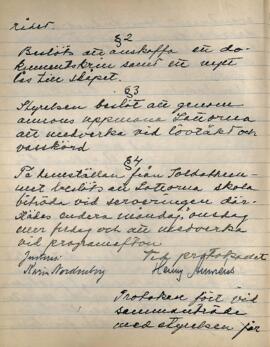 rådet.
§2
Beslöts att anskaffa ett do-
kumentskrin samt ett nytt
lås till skåpet.
§3
Styrelsen beslöt att genom
annons uppmana Lottorna
att medverka vid lövtäkt och
vasskörd
§4
På hemställan från Soldathem-
met beslöts att Lottorna skola
biträda vid serveringen där-
städes endera måndag, onsdag
eller fredag och att medverka
vid programafton
Justeras: Vid protokollet
Karin Nordenberg Henny
Protokoll fört vid
sammanträde
med styrelsen för